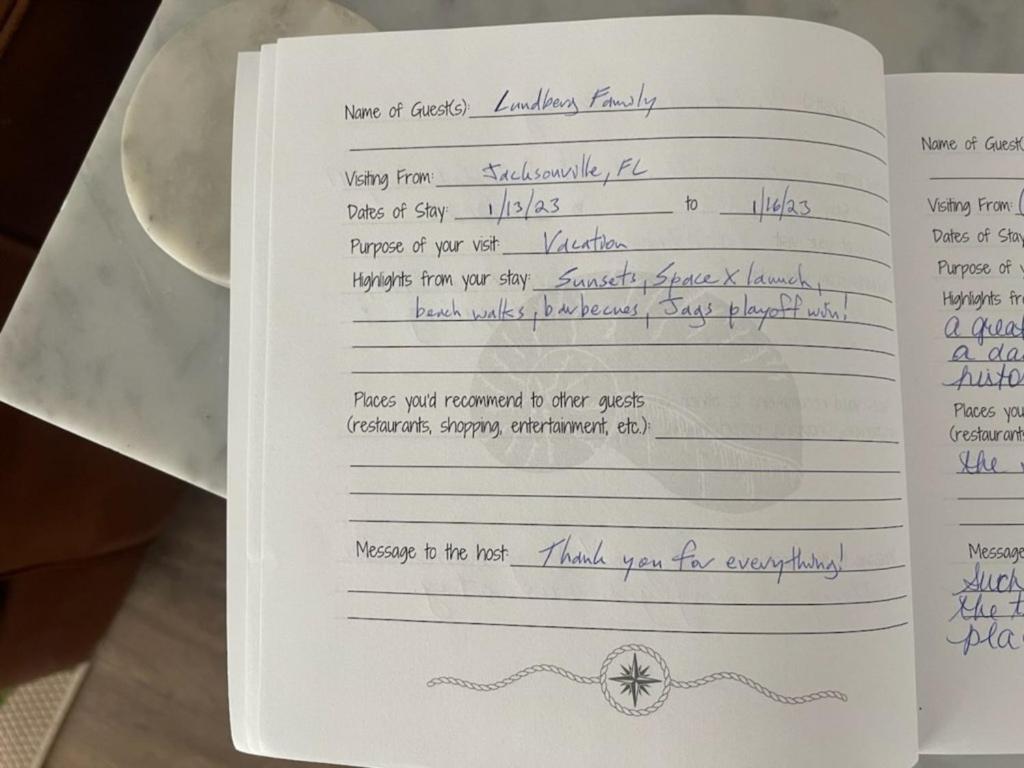 Name of Guest(s): Lundberg Family
Visiting From: Jacksonville, FL
Dates of Stay: 1/13/23 to 1/16/23
Purpose of your visit: Vacation
Highlights from your stay: Sunsets, Space X launch,
beach walks, barbecues, Jags playoff win!
Places you'd recommend to other guests
(restaurants, shopping, entertainment, etc.):
Message to the host: Thank you for everything!
Name of Guest(
Visiting From:
Dates of Stay
Purpose of y
Highlights fr
a great
a da
histo
Places you
(restaurants
the
Message
Such
the t
pla